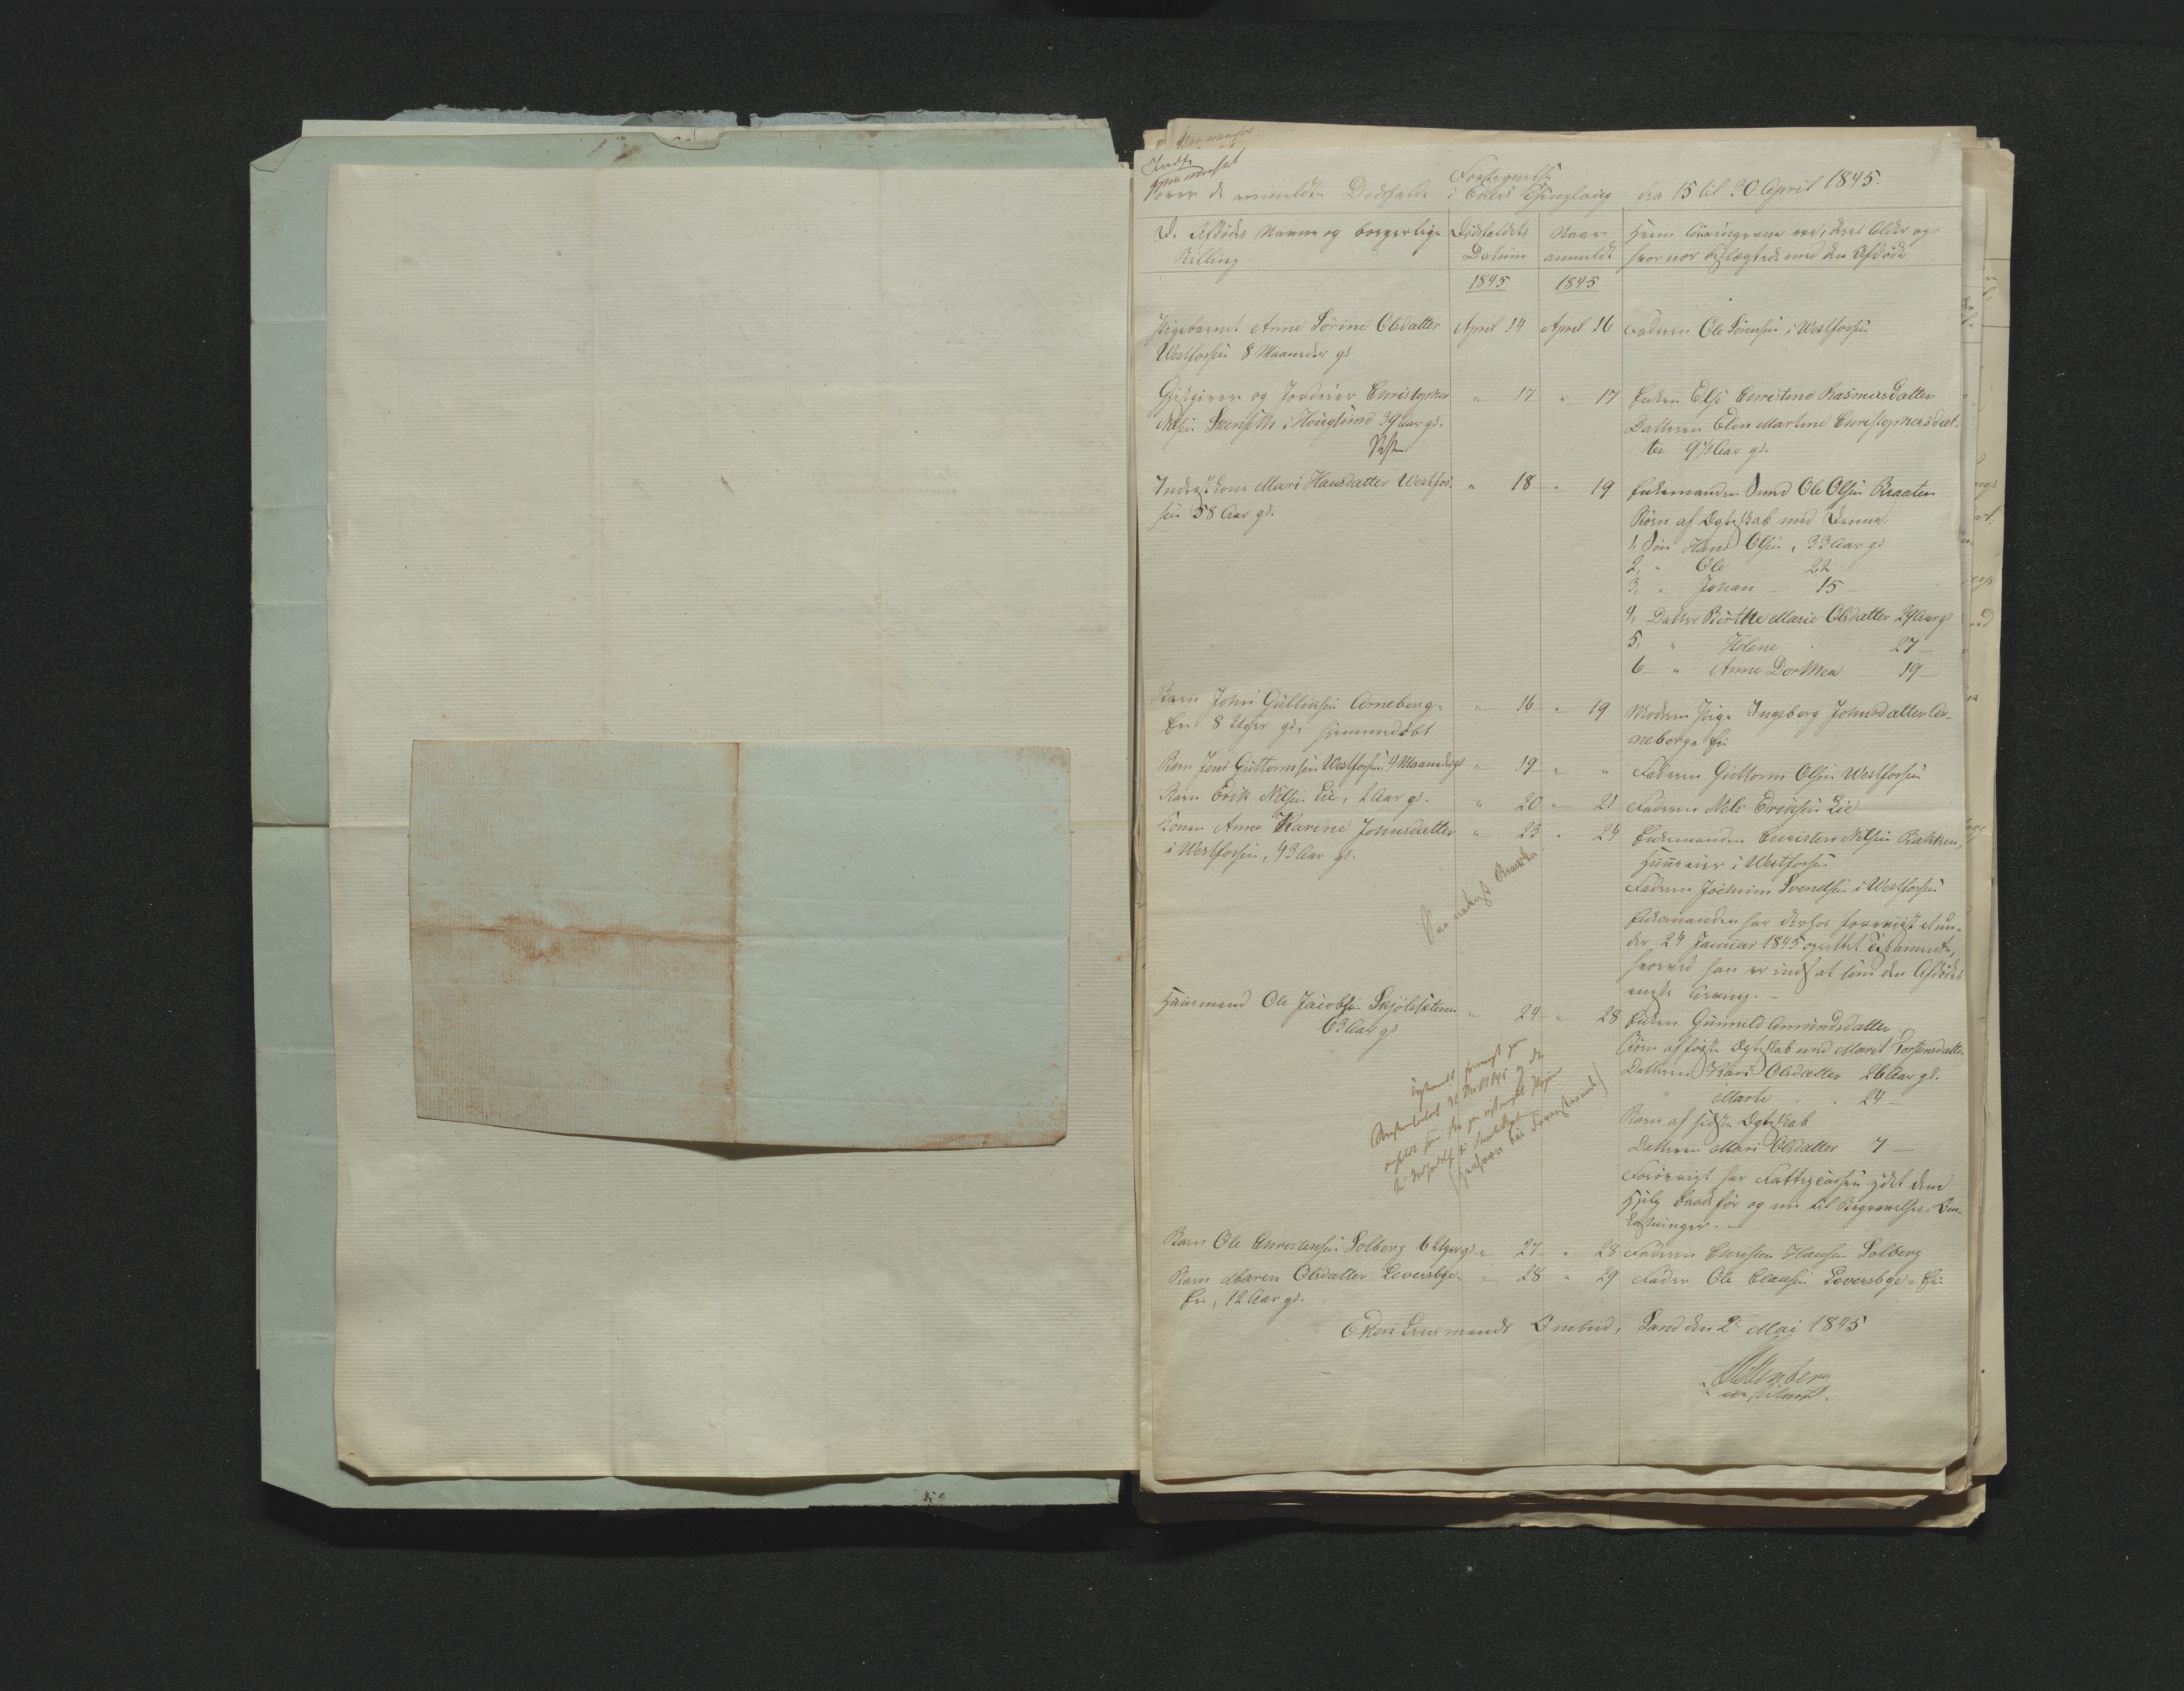 Fortegnelse
over de anmeldte Dødsfald i Eikers Thinglaug fra 15 til 30 April 1845.
De Afdødes Navne og borgerlige Stilling
Dødsfaldets Datum
Naar anmeldt
Hvem Arvingerne ere, deres Alder og hvor nær beslægtede med den Afdøde
1845 1845
Pigebarnet Anne Sørine Olsdatter April 14 April 16 Faderen Ole Sørensen i Westfossen
Westfossen 8 Maaneder gl
Gjestgiver og Jordeier Christopher " 17 " 17 Enken Else Christine Rasmusdatter
Nilsen i Hougsund 39 Aar gl. Datteren Elen Martine Christophersdat-
ter 9½ Aar gl.
Inderstkone Mari Hansdatter Westfos- " 18 " 19 Enkemanden Ole Olsen Braaten
sen 58 Aar gl. Børn af Ægteskab med Denne.
1, Søn Hans Olsen, 33 Aar gl
2, " Ole 22
3, " Johan 15
4, Datter Birthe Marie Olsdatter 29 Aar gl
5, " Helene 27
6 " Anne Dorthea 19
Barn John Gulliksen Arneberg- " 16 " 19 Moderen Pige Ingeborg Johnsdatter Ar-
Eie 8 Uger gl, hjemmedøbt neberg-Eie
Barn Jens Guttormsen Westfossen 4 Maaneder gl " 19 " " Faderen Guttorm Olsen Westfossen
Barn Erik Nilsen Lie, 2 Aar gl. " 20 " 21 Faderen Nils Eriksen Lie
Konen Anne Karine Johnsdatter " 23 " 24 Enkemanden Christen Nilsen Bakken,
i Westfossen, 43 Aar gl. Huuseier i Westfossen
Faderen Jochim Svendsen i Westfossen
Enkemanden har derhos foreviist et un-
der 24 Januar 1845 oprettet Testamente,
hvorved han er indsat som den Afdødes
eneste Arving.
Huusmand Ole Jacobsen " 24 " 28 Enken Gunnild Amundsdatter
63 Aar gl Børn af første Ægteskab med Marit Torstensdatter
Datteren Kari Olsdatter 26 Aar gl.
" Marte 24
Barn af sidste Ægteskab
Datteren Mari Olsdatter 7
Forøvrigt har Fattigcassen ydet dem
Hjelp baade før og nu til Begravelses Be-
kostninger.
Barn Ole Christensen Solberg 6 Uger gl " 27 " 28 Faderen Christen Hansen Solberg
Barn Maren Olsdatter Leversbye- " 28 " 29 Fader Ole Clausen Leversbye-Eie
Eie, 12 Aar gl.
Ekers Lensmands Ombud, Sand den 2 Mai 1845